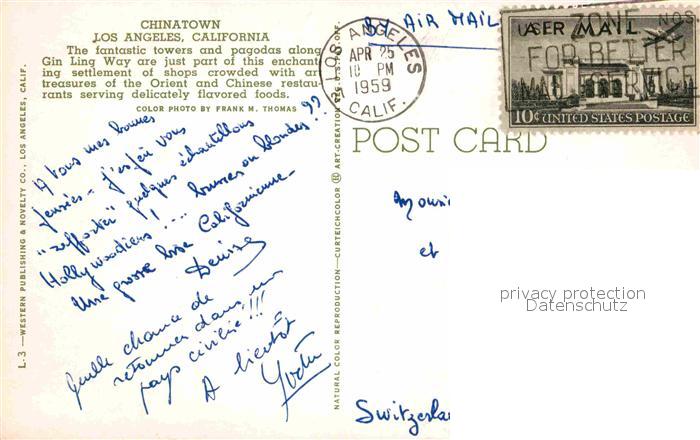 CHINATOWN
LOS ANGELES, CALIFORNIA
The fantastic towers and pagodas along
Gin Ling Way are just part of this enchant-
ing settlement of shops crowded with art
treasures of the Orient and Chinese restau-
rants serving delicately flavored foods.
COLOR PHOTO BY FRANK M. THOMAS
A tous mes bonnes
pensées - j'espère vous
"rapporter" quelques échantillons
Hollywoodiens! ... brunes ou blondes??
Une grosse bise Californienne -
Denise
Quelle chance de
retourner dans un
pays civilisé!!!
A bientôt
L-3 — WESTERN PUBLISHING & NOVELTY CO., LOS ANGELES, CALIF.
NATURAL COLOR REPRODUCTION—CURTEICHCOLOR ® ART-CREATION
BY AIR MAIL
LOS ANGELES
APR 25
10 PM
1959
CALIF.
ZONE NOS
FOR BETTER
AIR MAIL
10¢ UNITED STATES POSTAGE
POST CARD
et
privacy protection
Datenschutz
Switzerla